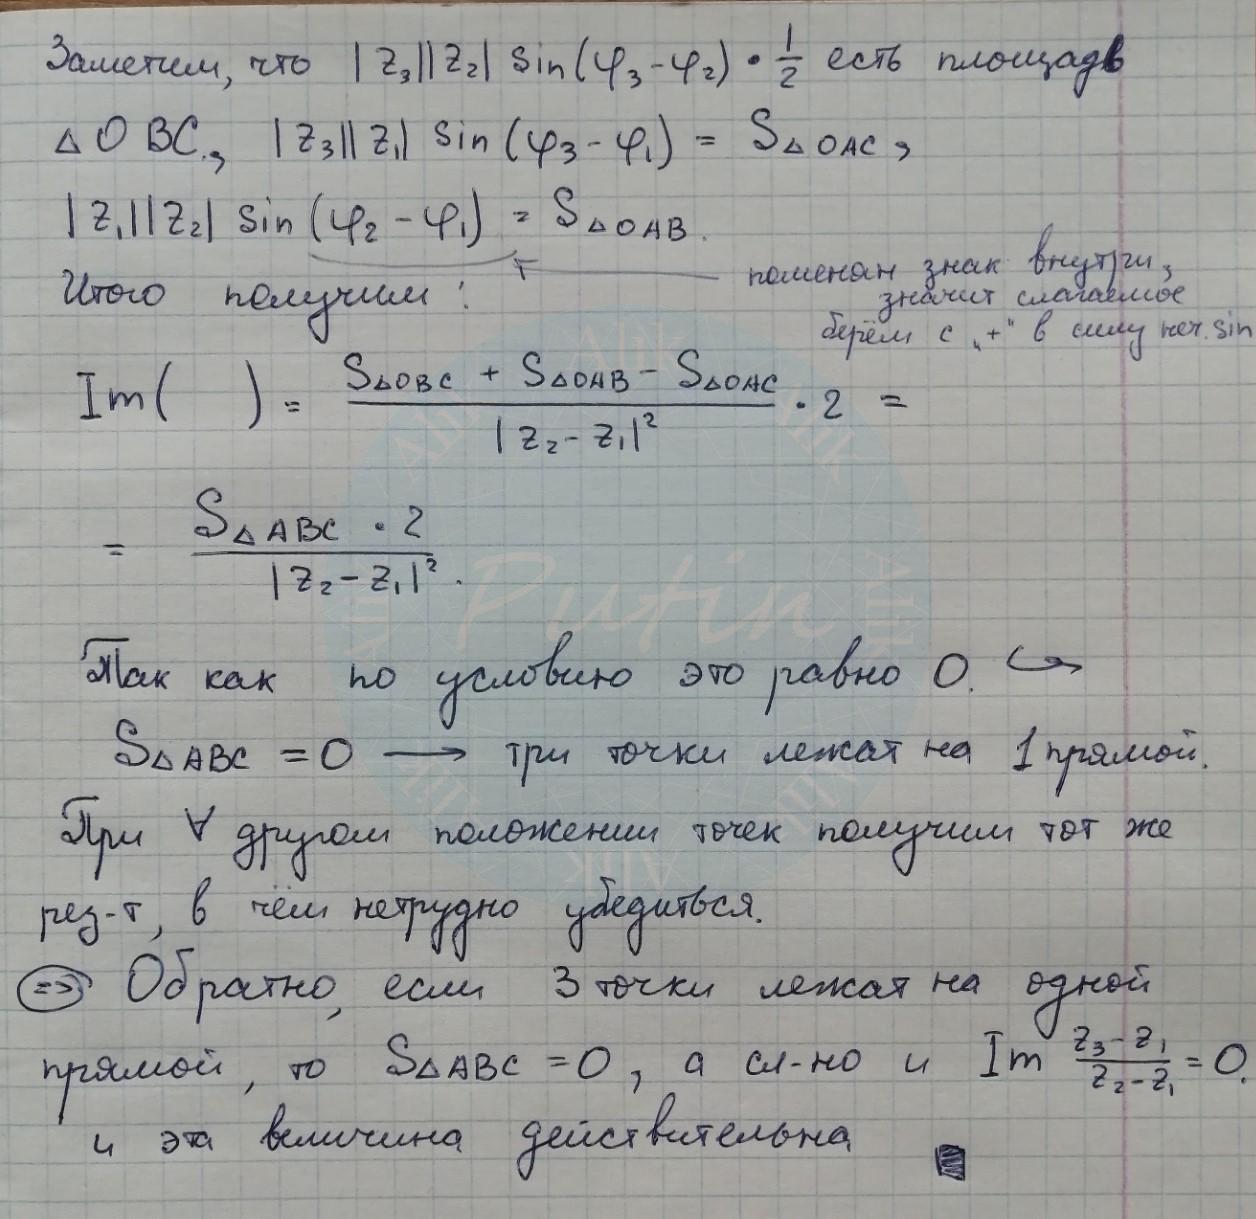 Заметим, что |z₃||z₂| sin(φ₃-φ₂) • 1/2 есть площадь
△OBC, |z₃||z₁| sin(φ₃-φ₁) = S△OAC,
|z₁||z₂| sin(φ₂-φ₁) = S△OAB.
поменян знак внутри,
Итого получим:
значит слагаемое
берём с „+“ в силу неч. sin
Im( ) = (S△OBC + S△OAB - S△OAC)/|z₂-z₁|² • 2 =
= (S△ABC • 2)/|z₂-z₁|².
Putin
Так как по условию это равно 0. ↪
S△ABC = 0 → три точки лежат на 1 прямой.
При ∀ другом положении точек получим тот же
рез-т, в чём нетрудно убедиться.
=> Обратно, если 3 точки лежат на одной
прямой, то S△ABC = 0, а сл-но и Im (z₃-z₁)/(z₂-z₁) = 0.
и эта величина действительна